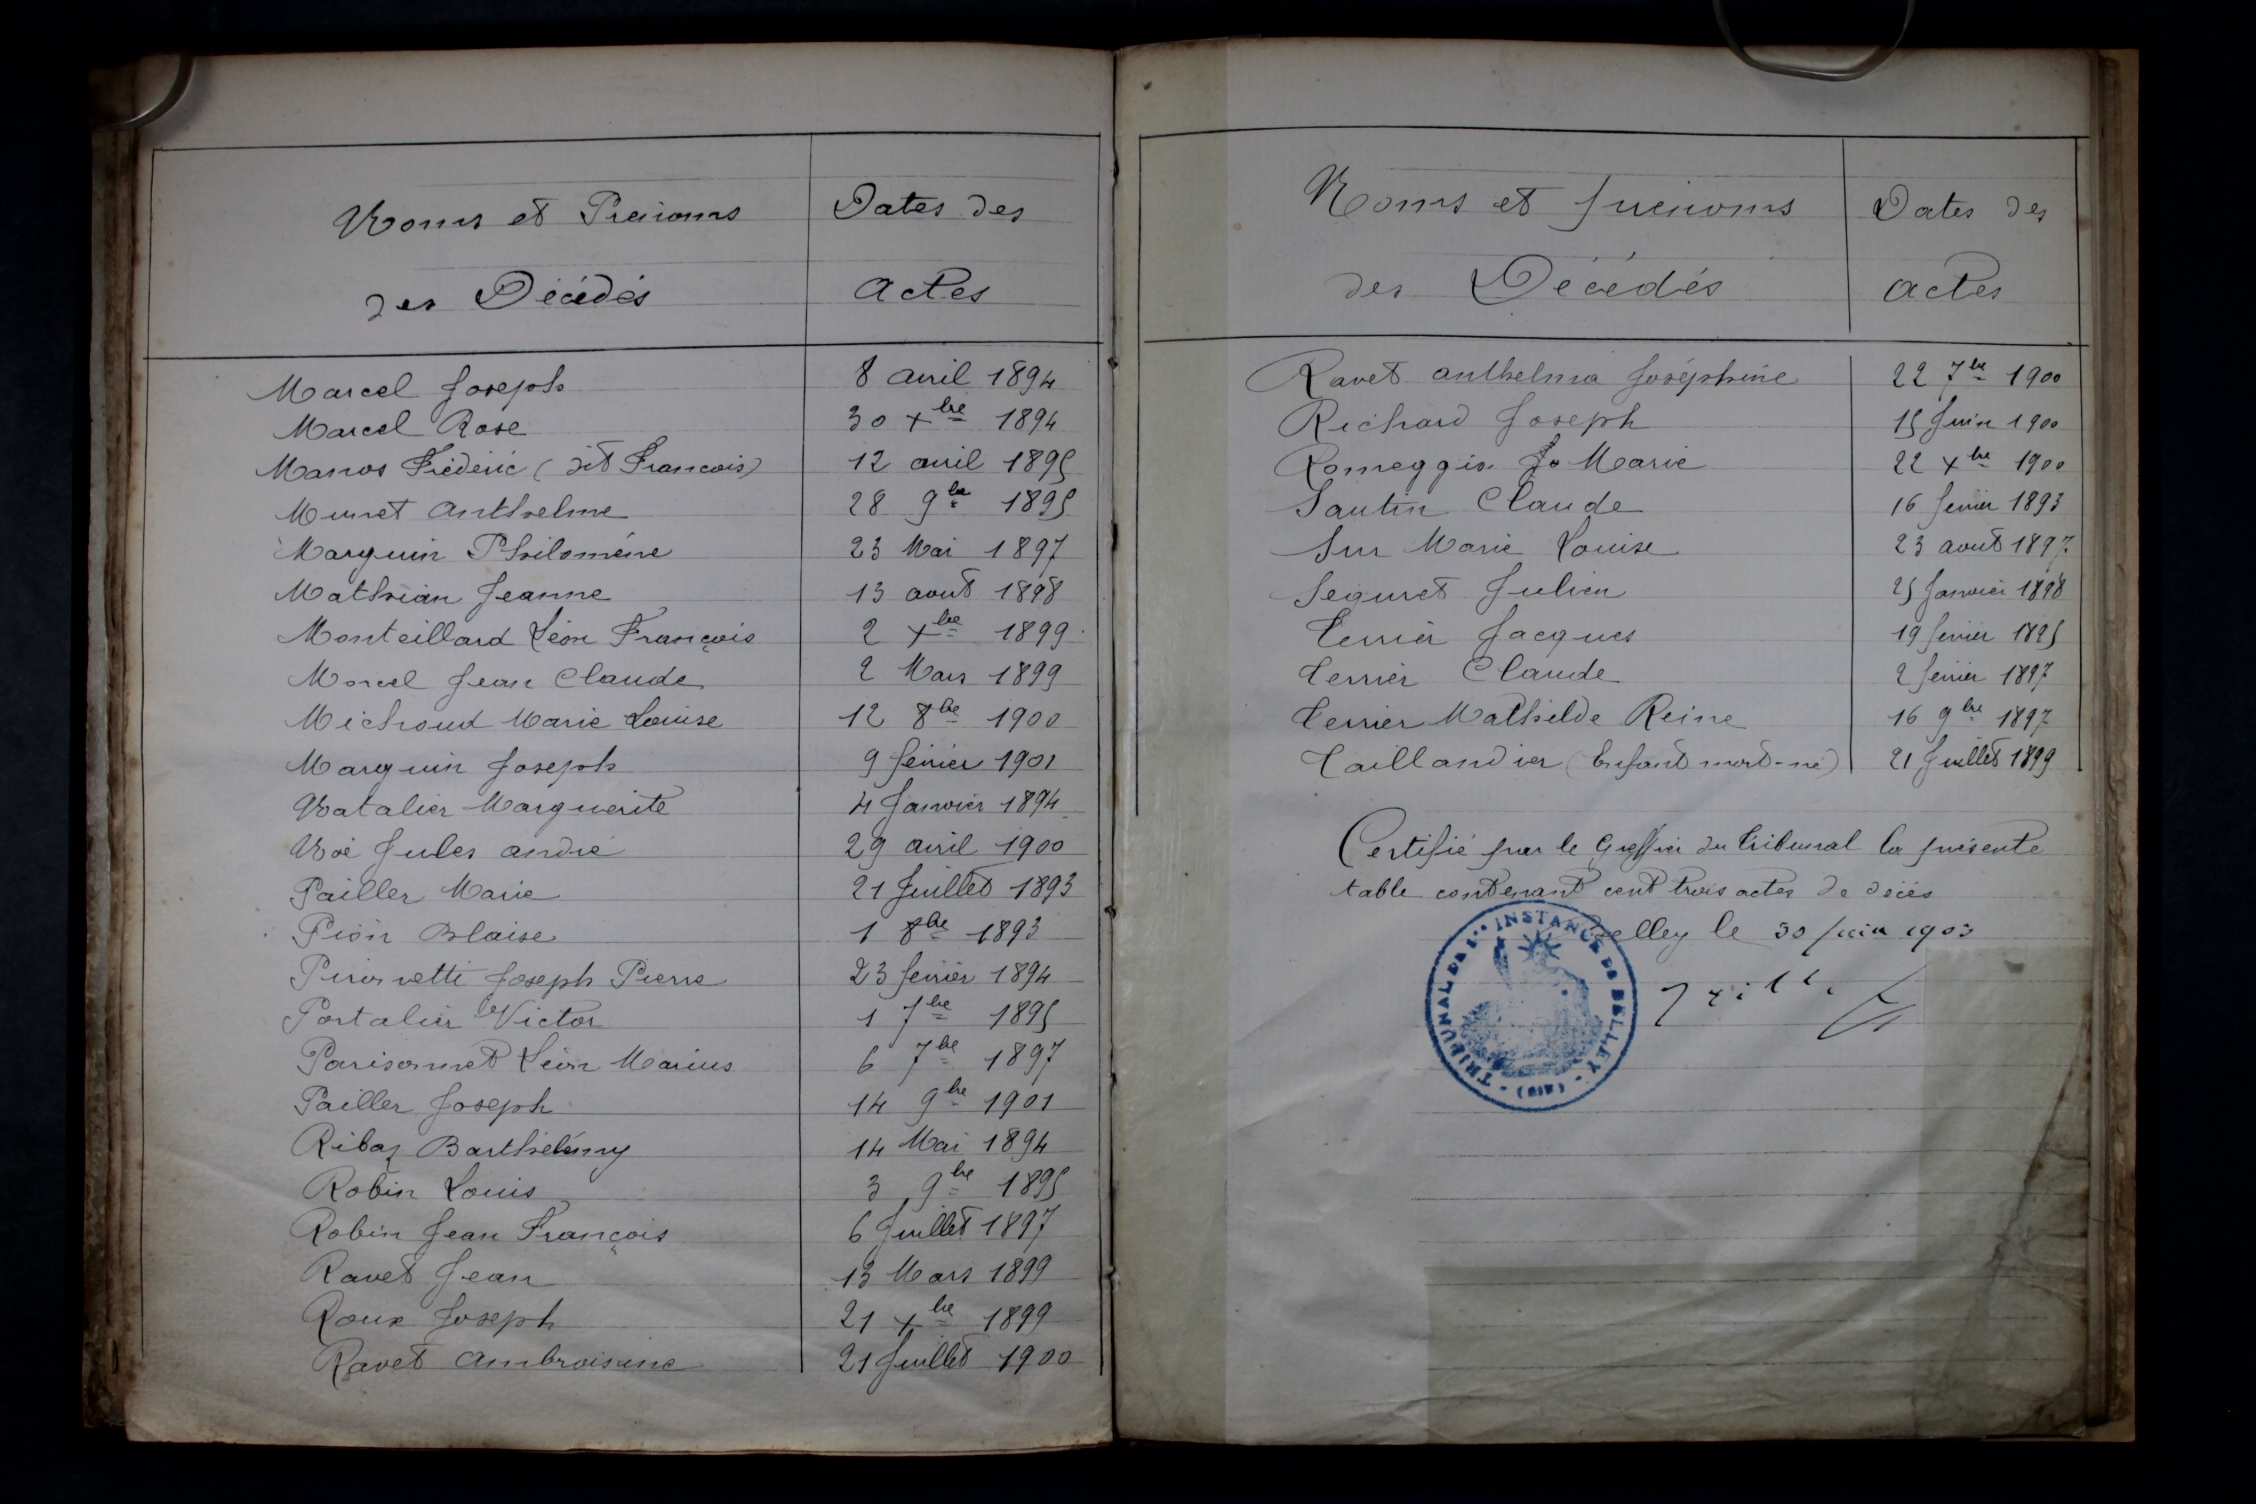 Noms et Prénoms
des Décédés
Dates des
actes
Marcel Joseph 8 avril 1894
Marcel Rose 30 Xbre 1894
Manos Frédéric (dit François) 12 avril 1895
Munet Anthelme 28 9bre 1895
Marguin Philomène 23 Mai 1897
Mathian Jeanne 13 aout 1898
Monteillard Léon François 2 Xbre 1899
Morcel Jean Claude 2 Mars 1899
Michoud Marie Louise 12 8bre 1900
Marguin Joseph 9 février 1901
Natalier Marguerite 4 Janvier 1894
Noé Jules andré 29 avril 1900
Pailler Marie 21 Juillet 1893
Pion Blaise 1 8bre 1893
Joseph Pierre 23 février 1894
Portalier Victor 1 7bre 1895
Parisonnet Léon Marius 6 7bre 1897
Pailler Joseph 14 9bre 1901
Ribaz Barthélémy 14 Mai 1894
Robin Louis 3 9bre 1895
Robin Jean François 6 Juillet 1897
Ravet Jean 13 Mars 1899
Roux Joseph 21 Xbre 1899
Ravet Ambroisine 21 Juillet 1900
Noms et prénoms
des Décédés
Dates des
actes
Ravet anthelma Joséphine 22 7bre 1900
Richard Joseph 15 Juin 1900
Romeggis Jo Marie 22 Xbre 1900
Santin Claude 16 février 1893
Sur Marie Louise 23 aout 1897
Seguret Julien 25 Janvier 1898
Terrier Jacques 19 février 1895
Terrier Claude 2 février 1897
Terrier Mathilde Reine 16 9bre 1897
Taillandier (Enfant mort-né) 21 Juillet 1899
Certifié par le Greffier du Tribunal la présente
table contenant cent trois actes de décès
Belley le 30 juin 1903
TRIBUNAL DE 1re INSTANCE DE BELLEY (AIN)